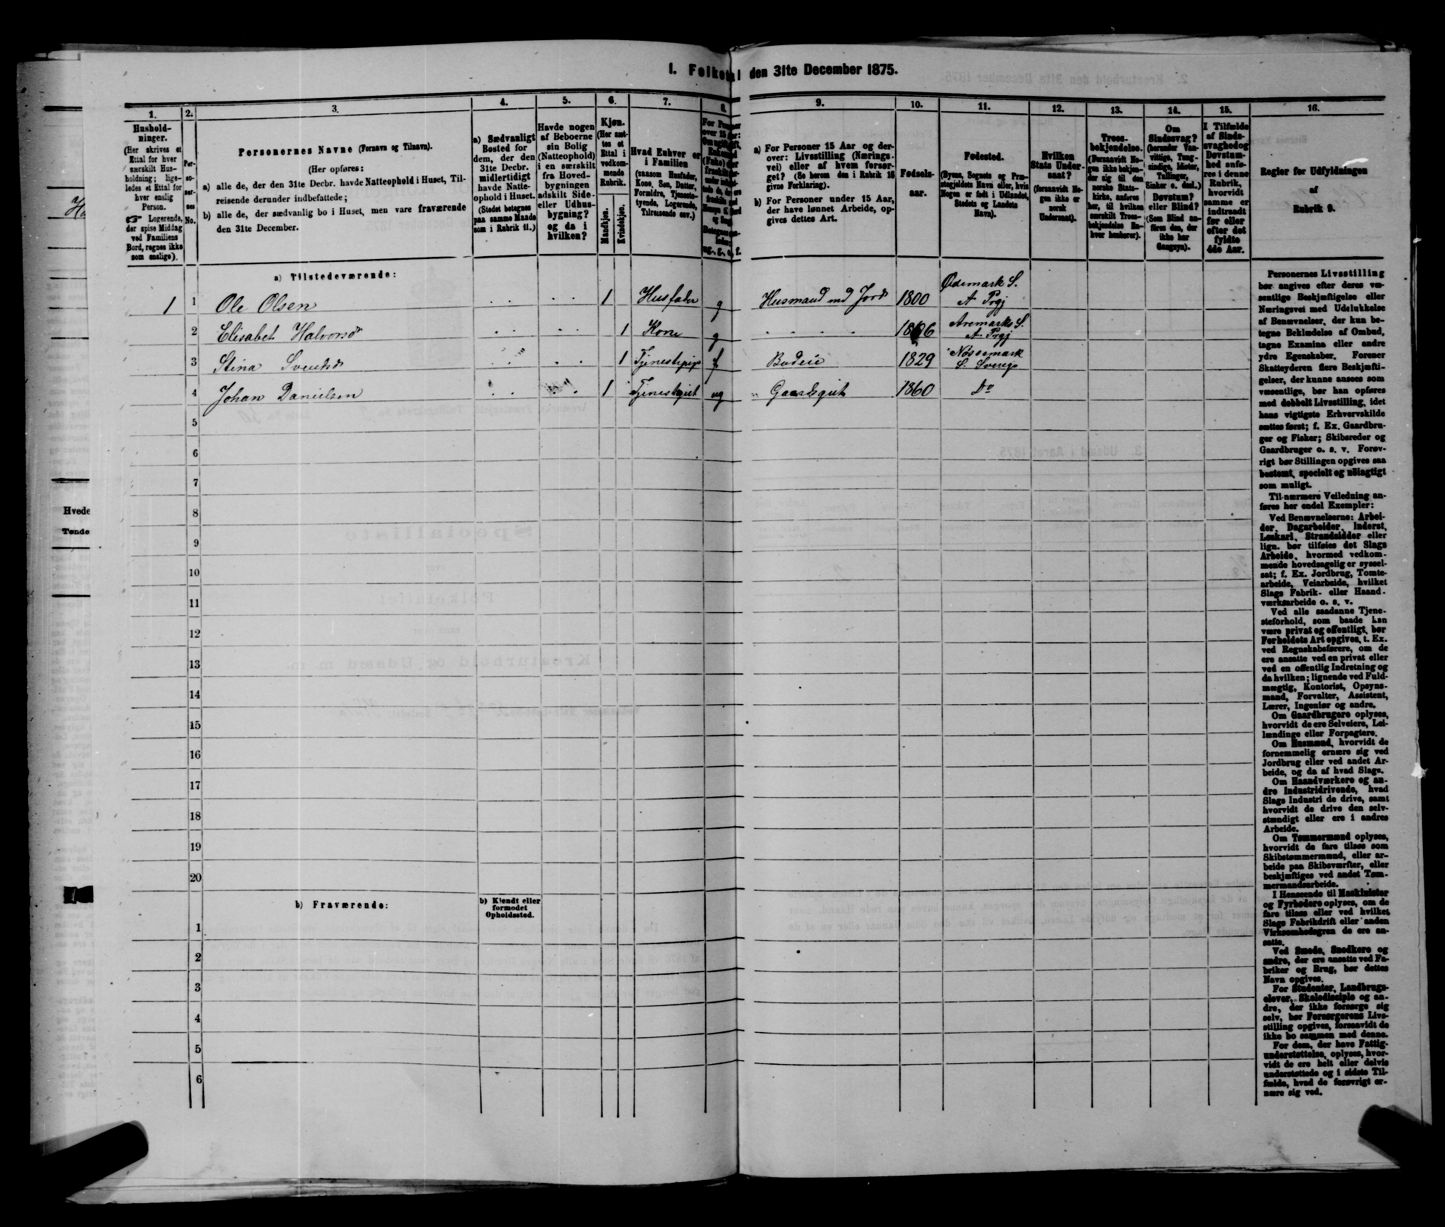 1. Folketal den 31te December 1875.
1. 2. 3. 4. 5. 6. 7. 8. 9. 10. 11. 12. 13. 14. 15. 16.
Hushold-
ninger.
(Her skrives et
Ettal for hver
særskilt Hus-
holdning; lige-
ledes et Ettal for
hver enslig
Person.
☞ Logerende,
der spise Middag
ved Familiens
Bord, regnes ikke
som enslige).
Per-
so-
ner-
nes
No.
Personernes Navne (Fornavn og Tilnavn).
(Her opføres:
a) alle de, der den 31te Decbr. havde Natteophold i Huset, Til-
reisende derunder indbefattede;
b) alle de, der sædvanlig bo i Huset, men vare fraværende
den 31te December.
a) Sædvanligt
Bosted for
dem, der den
31te Decbr.
midlertidigt
havde Natte-
ophold i Huset.
(Stedet betegnes
paa samme Maade
som i Rubrik 11.)
Havde nogen
af Beboerne
sin Bolig
(Natteophold)
i en særskilt
fra Hoved-
bygningen
adskilt Side-
eller Udhus-
bygning?
og da i
hvilken?
Kjøn.
(Her sæt-
tes et
Ettal i
vedkom-
mende
Rubrik.
Mandkjøn.
Kvindekjøn.
Hvad Enhver er
i Familien
(saasom Husfader,
Kone, Søn, Datter,
Forældre, Tjeneste-
tyende, Logerende,
Tilreisende osv.)
a) For Personer 15 Aar og der-
over: Livsstilling (Nærings-
vei) eller af hvem forsør-
get? (Se herom den i Rubrik 16
givne Forklaring).
b) For Personer under 15 Aar,
der have lønnet Arbeide, op-
gives dettes Art.
Fødsels-
aar.
Fødested.
(Byens, Sognets og Præ-
stegjeldets Navn eller, hvis
Nogen er født i Udlandet,
Stedets og Landets
Navn).
Hvilken
Stats Under-
saat?
(forsaavidt No-
gen ikke er
norsk
Undersaat).
Troes-
bekjendelse.
(Forsaavidt No-
gen ikke bekjen-
der sig til den
norske Stats-
kirke, anføres
her, til hvilken
særskilt Troes-
bekjendelse En-
hver henhører).
Om
Sindssvag?
(herunder Van-
vittige, Tung-
sindige, Idioter,
Tullinger,
Sinker o. desl.)
Døvstum?
eller Blind?
(Som Blind an-
føres den, der
ikke har
Gangsyn).
I Tilfælde
af Sinds-
svaghed og
Døvstum-
hed anfø-
res i denne
Rubrik,
hvorvidt
samme er
indtraadt
før eller
efter det
fyldte
4de Aar.
Regler for Udfyldningen
af
Rubrik 9.
a) Tilstedeværende:
1 1 Ole Olsen 1 Husfader g Husmand med Jord 1800 Ødemark S. A. Prgj
2 Elisabet Halvorsd 1 Kone g Aremarks S. A Prgj
3 Stina Svensd 1 Tjenestepige f Budeie 1829 Nössemark S. Sverge
4 Johan Danielsen 1 Tjenestgut ug Gaardsgut 1860 do
5
6
7
8
9
10
11
12
13
14
15
16
17
18
19
20
b) Fraværende:
b) Kjendt eller
formodet
Opholdssted.
1
2
3
4
5
6
Personernes Livsstilling
bør angives efter deres væ-
sentlige Beskjæftigelse eller
Næringsvei med Udelukkelse
af Benævnelser, der kun be-
tegne Beklædelse af Ombud,
tagne Examina eller andre
ydre Egenskaber. Forener
Skatteyderen flere Beskjæfti-
gelser, der kunne ansees som
væsentlige, bør han opføres
med dobbelt Livsstilling, idet
hans vigtigste Erhvervskilde
sættes først; f. Ex. Gaardbru-
ger og Fisker; Skibsreder og
Gaardbruger o. s. v. Forøv-
rigt bør Stillingen opgives saa
bestemt, specielt og nøiagtigt
som muligt.
Til nærmere Veiledning an-
føres her endel Exempler:
Ved Benævnelserne: Arbei-
der, Dagarbeider, Inderst,
Løskarl, Strandsidder eller
lign. bør tilføies det Slags
Arbeide, hvormed vedkom-
mende hovedsagelig er syssel-
sat; f. Ex. Jordbrug, Tomte-
arbeide, Veiarbeide, hvilket
Slags Fabrik- eller Haand-
værksarbeide o. s. v.
Ved alle saadanne Tjene-
steforhold, som baade kan
være privat og offentligt, bør
Forholdets Art opgives, t. Ex.
ved Regnskabsførere, om de
ere ansatte ved en privat eller
ved en offentlig Indretning og
da hvilken; lignende ved Fuld-
mægtig, Kontorist, Opsyns-
mand, Forvalter, Assistent,
Lærer, Ingeniør og andre.
Om Gaardbrugere oplyses,
hvorvidt de ere Selveiere, Lei-
lændinge eller Forpagtere.
Om Husmænd, hvorvidt de
fornemmelig ernære sig ved
Jordbrug eller ved andet Ar-
beide, og da af hvad Slags.
Om Haandværkere og an-
dre Industridrivende, hvad
Slags Industri de drive, samt
hvorvidt de drive den selv-
stændigt eller ere i andres
Arbeide.
Om Tømmermænd oplyses,
hvorvidt de fare tilsøs som
Skibstømmermænd, eller ar-
beide paa Skibsværfter, eller
beskjæftiges ved andet Tøm-
mermandsarbeide.
I Henseende til Maskinister
og Fyrbødere oplyses, om de
fare tilsøs eller ved hvilket
Slags Fabrikdrift eller anden
Virksomhedsgren de ere an-
satte.
Ved Smede, Snedkere og
andre, der ere ansatte ved Fa-
briker og Brug, bør dettes
Navn opgives.
For Studenter, Landbrugs-
elever, Skoledisciple og an-
dre, der ikke forsørge sig
selv, bør Forsørgerens Livs-
stilling opgives, forsaavidt de
ikke bo sammen med denne.
For dem, der have Fattig-
understøttelse, oplyses, hvor-
vidt de ere helt eller delvis
understøttede og i sidste Til-
fælde, hvad de forøvrigt er-
nære sig ved.
Hvede
Tønde